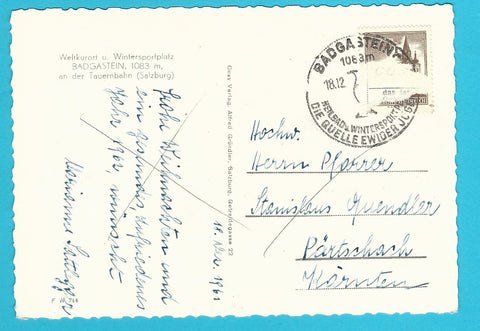 Weltkurort u. Wintersportplatz
BADGASTEIN, 1083 m,
an der Tauernbahn (Salzburg)
Frohe Weihnachten und
ein gesundes, zufriedenes
Jahr 1962, wünscht
Marianne
18. Dez. 1961
Cosy Verlag, Alfred Gründler, Salzburg, Getreidegasse 22
BADGASTEIN
1083m
18.12
HEILBAD u. WINTERSPORT
DIE QUELLE EWIGER JUGEND
Hochw.
Herrn Pfarrer
Stanislaus Quendler
Pörtschach
Kärnten